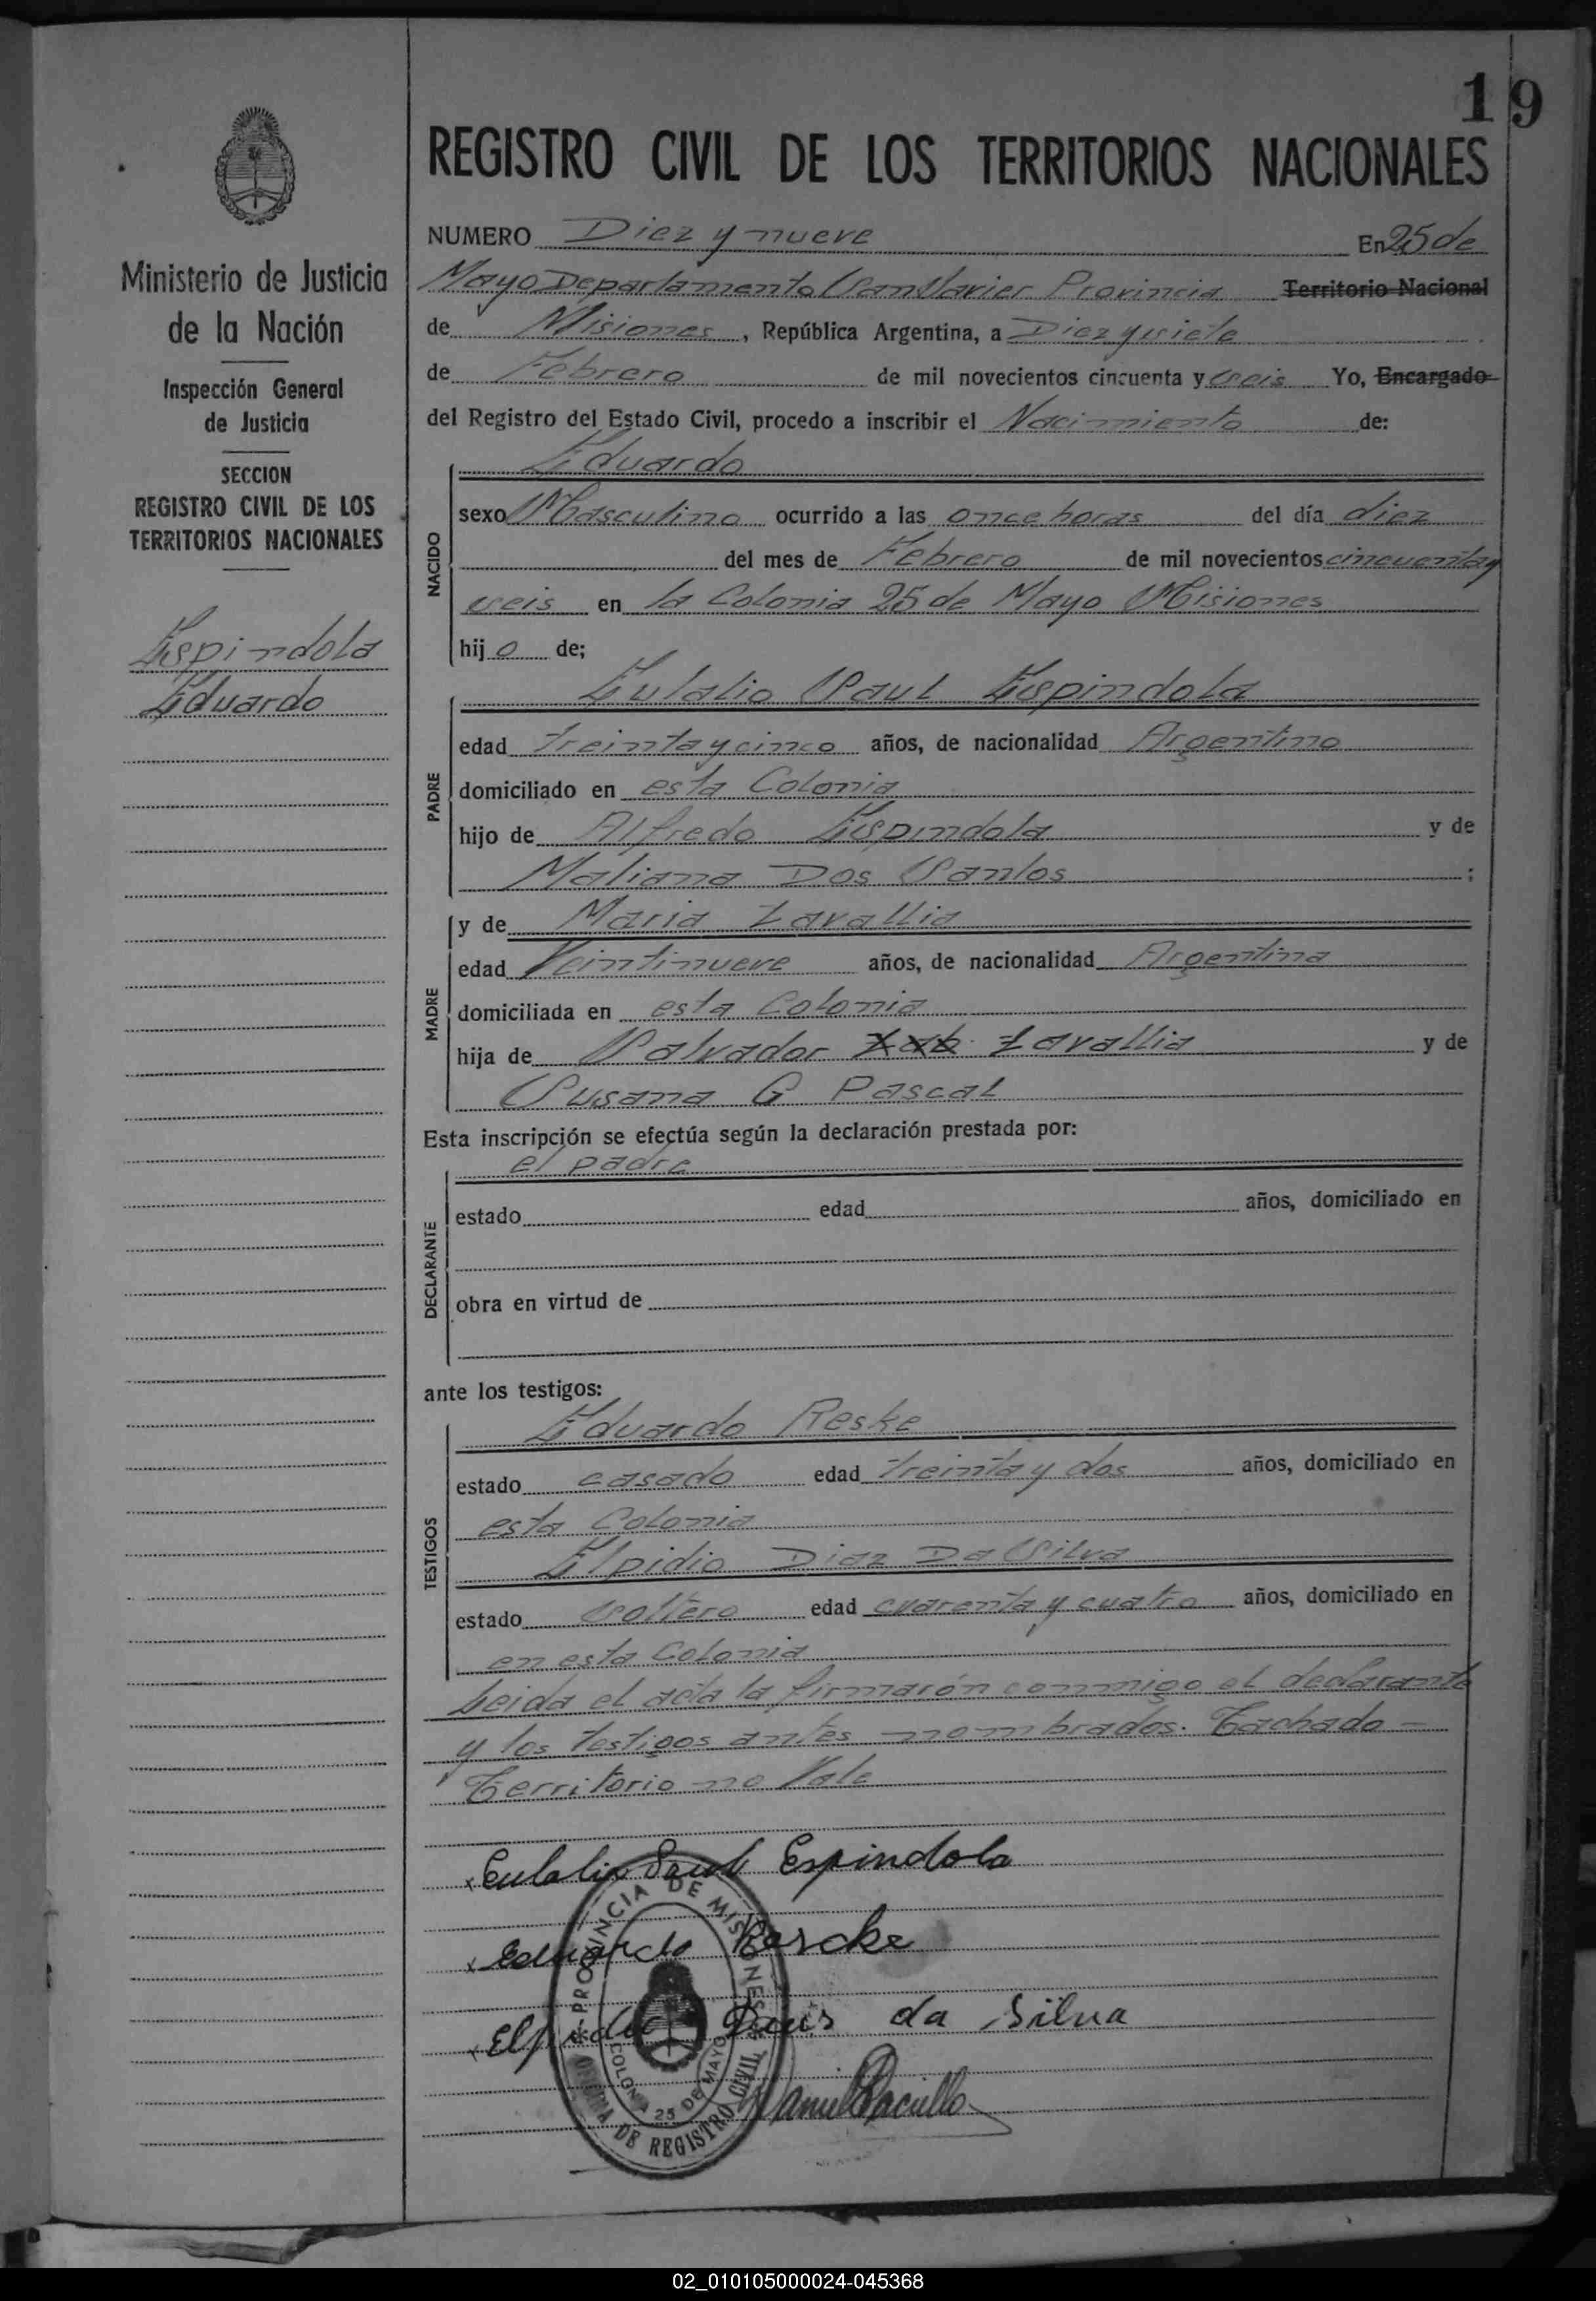 19
REGISTRO CIVIL DE LOS TERRITORIOS NACIONALES
Ministerio de Justicia
de la Nación
Inspección General
de Justicia
SECCION
REGISTRO CIVIL DE LOS
TERRITORIOS NACIONALES
Espindola
Eduardo
NUMERO Diez y nueve En 25 de
Mayo Departamento San Javier Provincia Territorio Nacional
de Misiones, República Argentina, a Diez y siete
de Febrero de mil novecientos cincuenta y seis Yo, Encargado
del Registro del Estado Civil, procedo a inscribir el Nacimiento de:
NACIDO
Eduardo
sexo Masculino ocurrido a las once horas del día diez
del mes de Febrero de mil novecientos cincuenta y
seis en la Colonia 25 de Mayo Misiones
hijo de;
PADRE
Eulalio Saul Espindola
edad treinta y cinco años, de nacionalidad Argentino
domiciliado en esta Colonia
hijo de Alfredo Espindola y de
Maliana Dos Santos ;
MADRE
y de Maria Lavallia
edad Veintinueve años, de nacionalidad Argentina
domiciliada en esta Colonia
hija de Salvador Lavallia y de
Susana G Pascal
Esta inscripción se efectúa según la declaración prestada por:
DECLARANTE
el padre
estado edad años, domiciliado en
obra en virtud de
ante los testigos:
TESTIGOS
Eduardo Reske
estado casado edad treinta y dos años, domiciliado en
esta Colonia
Elpidio Diaz Da Silva
estado soltero edad cuarenta y cuatro años, domiciliado en
en esta Colonia
Leida el acta la firmarón conmigo el declarante
y los testigos antes nombrados. Tachado -
Territorio no Vale
Eulalio Saul Espindola
Eduardo Rescke
Elpidio Dias da Silva
PROVINCIA DE MISIONES
COLONIA 25 DE MAYO
OFICINA DE REGISTRO CIVIL
02_010105000024-045368